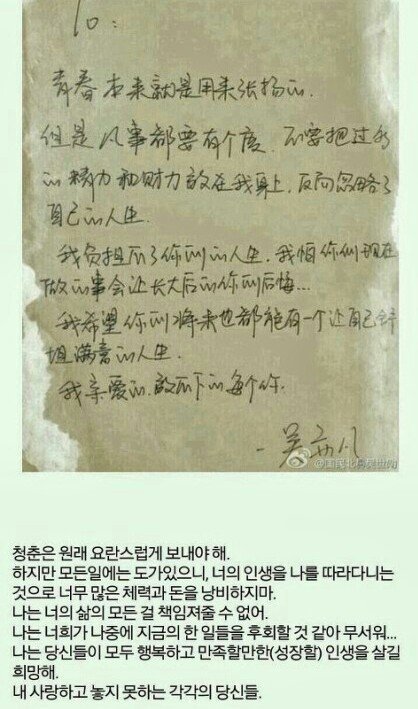 To:
青春本来就是用来张扬的.
但是凡事都要有个度. 不要把过多
的精力和财力放在我身上, 反而忽略了
自己的人生.
我负担不了你们的人生. 我怕你们现在
做的事会让长大后的你们后悔...
我希望你们将来也都能有一个让自己舒
坦满意的人生.
我亲爱的. 放不下的每个你.
- 吴亦凡
청춘은 원래 요란스럽게 보내야 해.
하지만 모든일에는 도가있으니, 너의 인생을 나를 따라다니는
것으로 너무 많은 체력과 돈을 낭비하지마.
나는 너의 삶의 모든 걸 책임져줄 수 없어.
나는 너희가 나중에 지금의 한 일들을 후회할 것 같아 무서워...
나는 당신들이 모두 행복하고 만족할만한(성장할) 인생을 살길
희망해.
내 사랑하고 놓지 못하는 각각의 당신들.